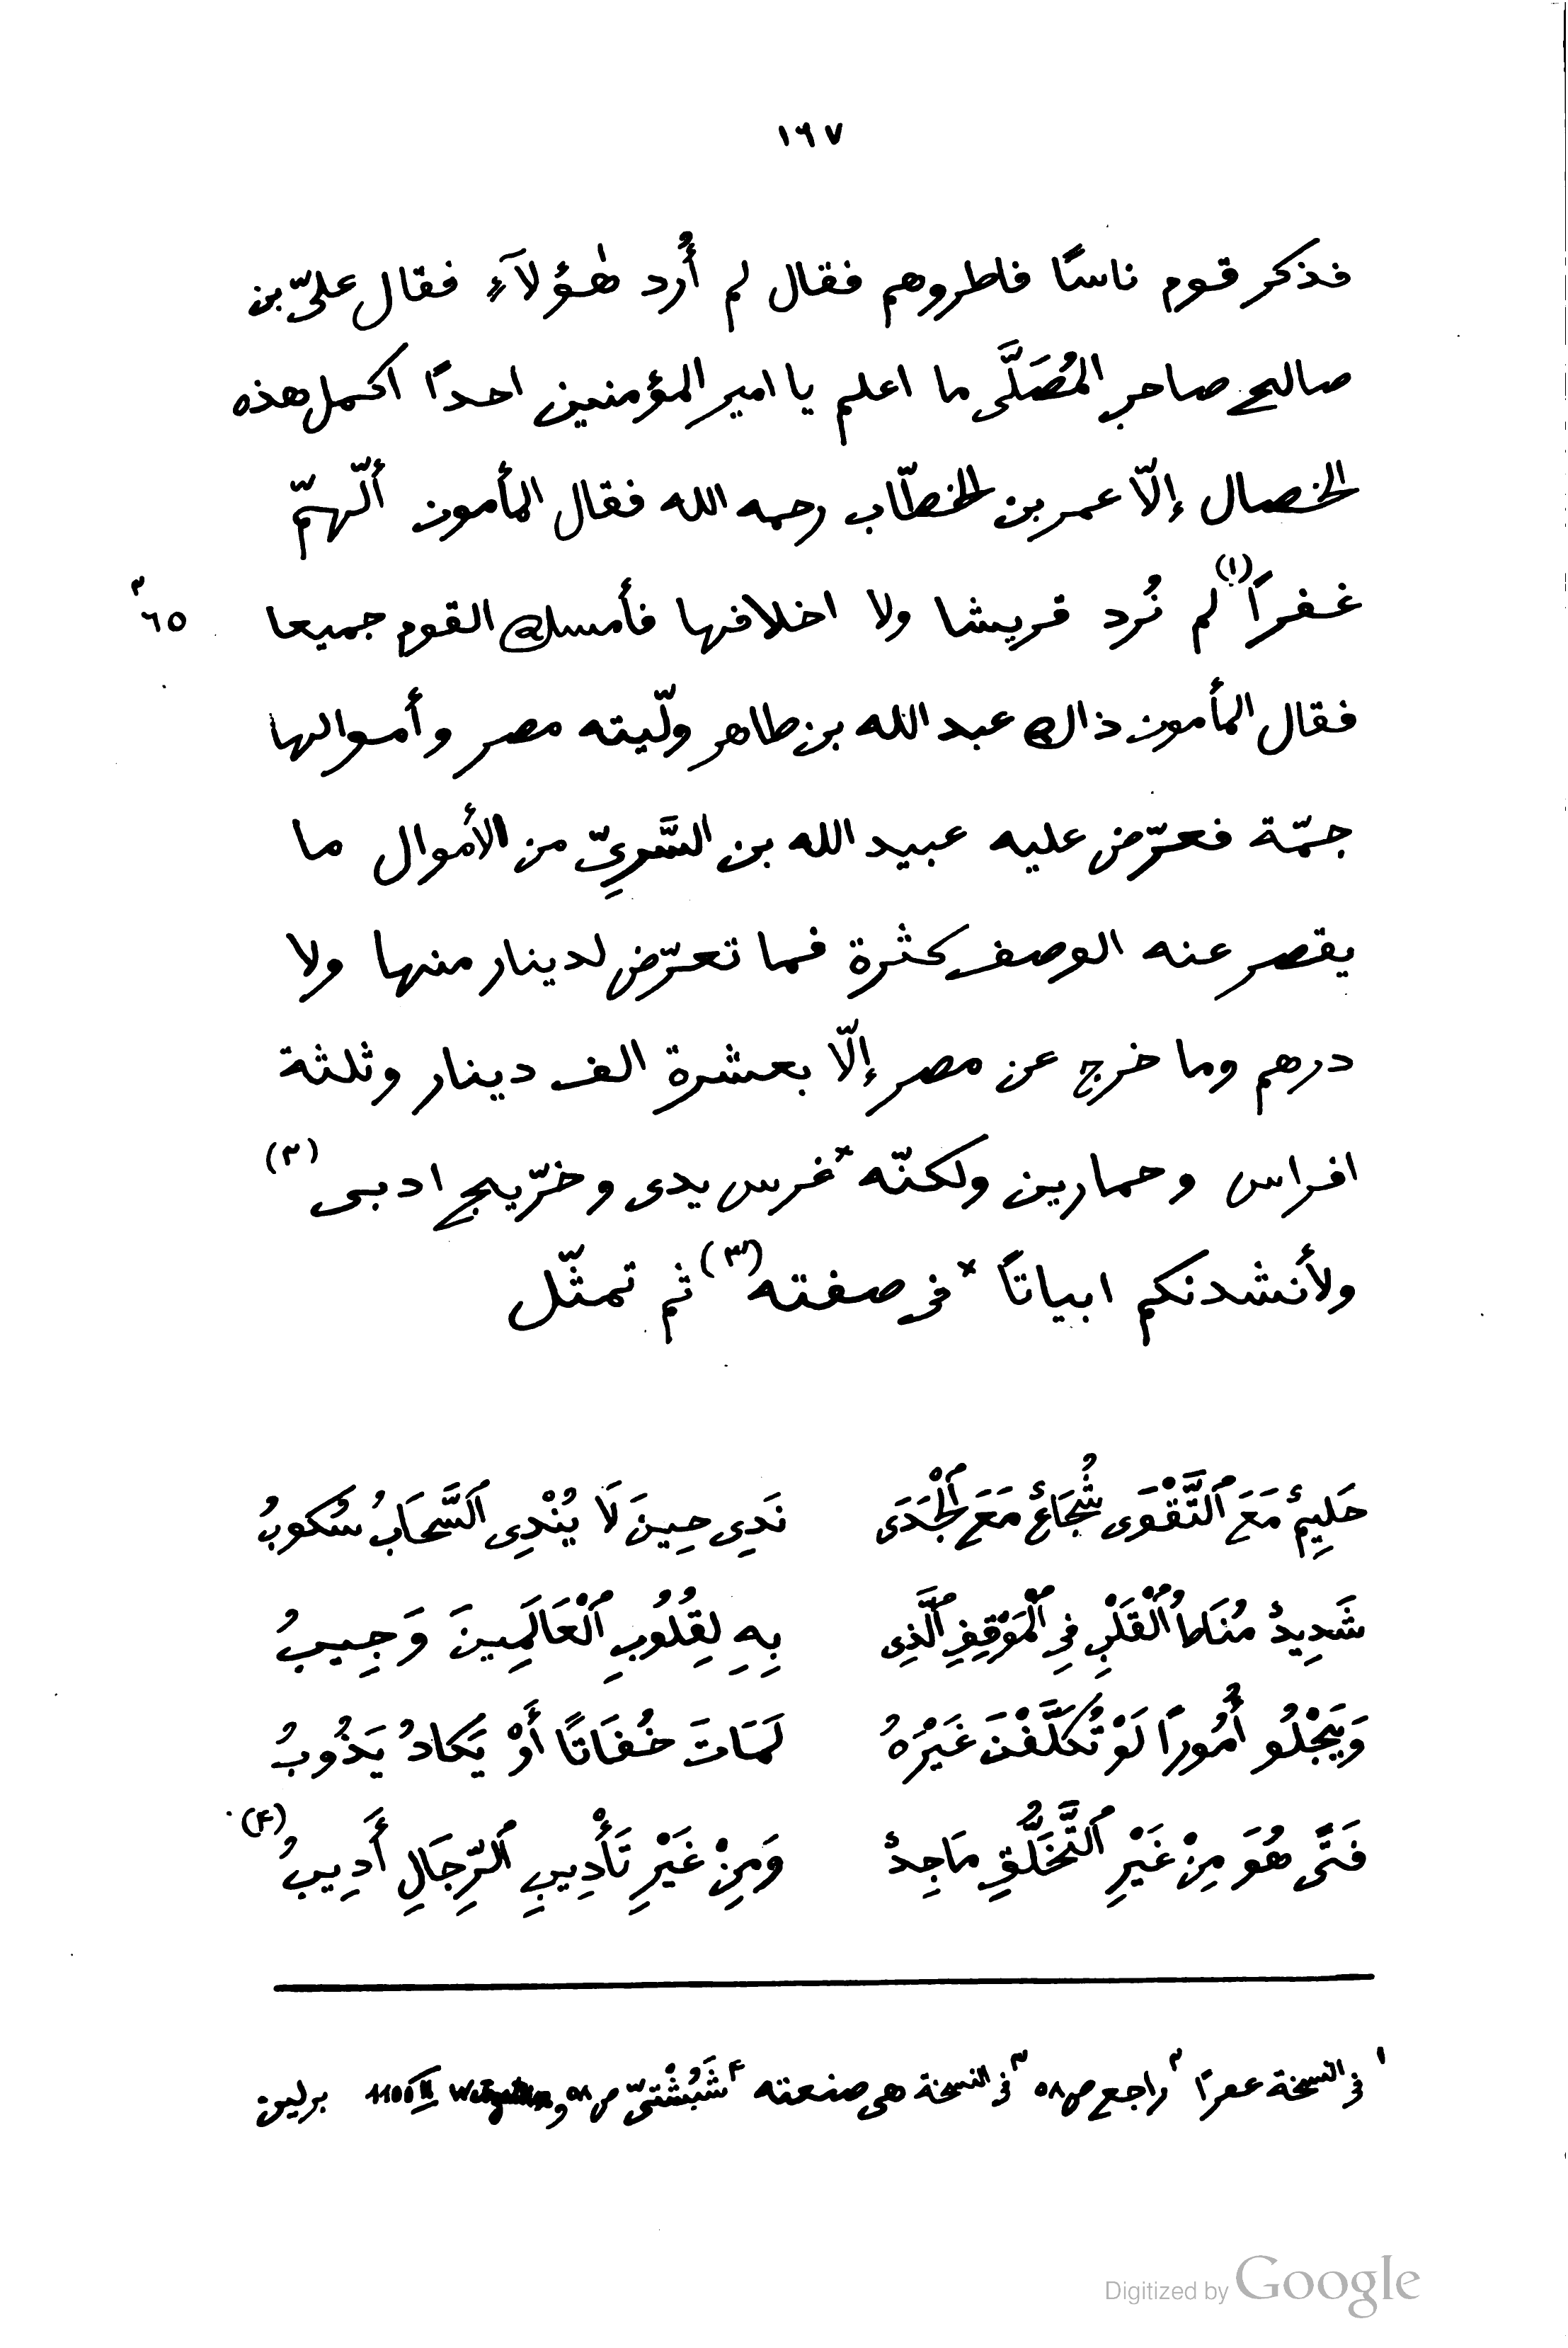 ١٦٧
فذكر قوم ناسًا فاطروهم فقال لم أُرد هٰؤلآءِ فقال علىّ بن
صالح صاحب المُصَلَّى ما اعلم يا امير المؤمنين احدًا اكمل هذه
الخصال إلّا عمر بن الخطّاب رحمه الله فقال المأمون أللّهمّ
غفرًا(١) لم نُرد قريشا ولا اخلاقها فأمسك القوم جميعا
٢
٦٥
فقال المأمون ذاك عبد الله بن طاهر ولّيته مصر وأموالها
جمّة فعرّض عليه عبيد الله بن السَّرِىّ من الأموال ما
يقصر عنه الوصف كثرة فما تعرّض لدينار منها ولا
درهم وما خرج عن مصر إلّا بعشرة الف دينار وثلثة
افراس وحمارين ولكنّه *غرس يدى وخرّيج ادبى (٢)
ولأنشدنكم ابياتًا *فى صفته(٣) ثم تمثّل
حَلِيمٌ مَعَ ٱلتَّقْوَى شُجَاعٌ مَعَ ٱلْجَدَى نَدِى حِينَ لَا يُنْدِى ٱلسَّحَابُ سُكوبُ
شَدِيدُ مُنَاطُ ٱلْقَلْبِ فِى ٱلْمَوْقِفِ ٱلَّذِى بِهِ لِقُلُوبِ ٱلْعَالَمِينَ وَجِيبُ
وَيَجْلُو أُمُورًا لَوْ تُكَلَّفْنَ غَيْرُهُ لَمَاتَ خُفَاتًا أَوْ يَكَادُ يَذُوبُ
فَتًى هُوَ مِنْ غَيْرِ ٱلتَّخَلُّقِ مَاجِدٌ وَمِنْ غَيْرِ تَأْدِيبِ ٱلرِّجَالِ أَدِيبُ (۴)
١ فى النسخة عمرًا ٢ راجع ص ٥٨ ٣ فى النسخة هى صنعته ۴ شَبُشْتىّ ص ٥٨ و II 1100 برلين
Digitized by Google